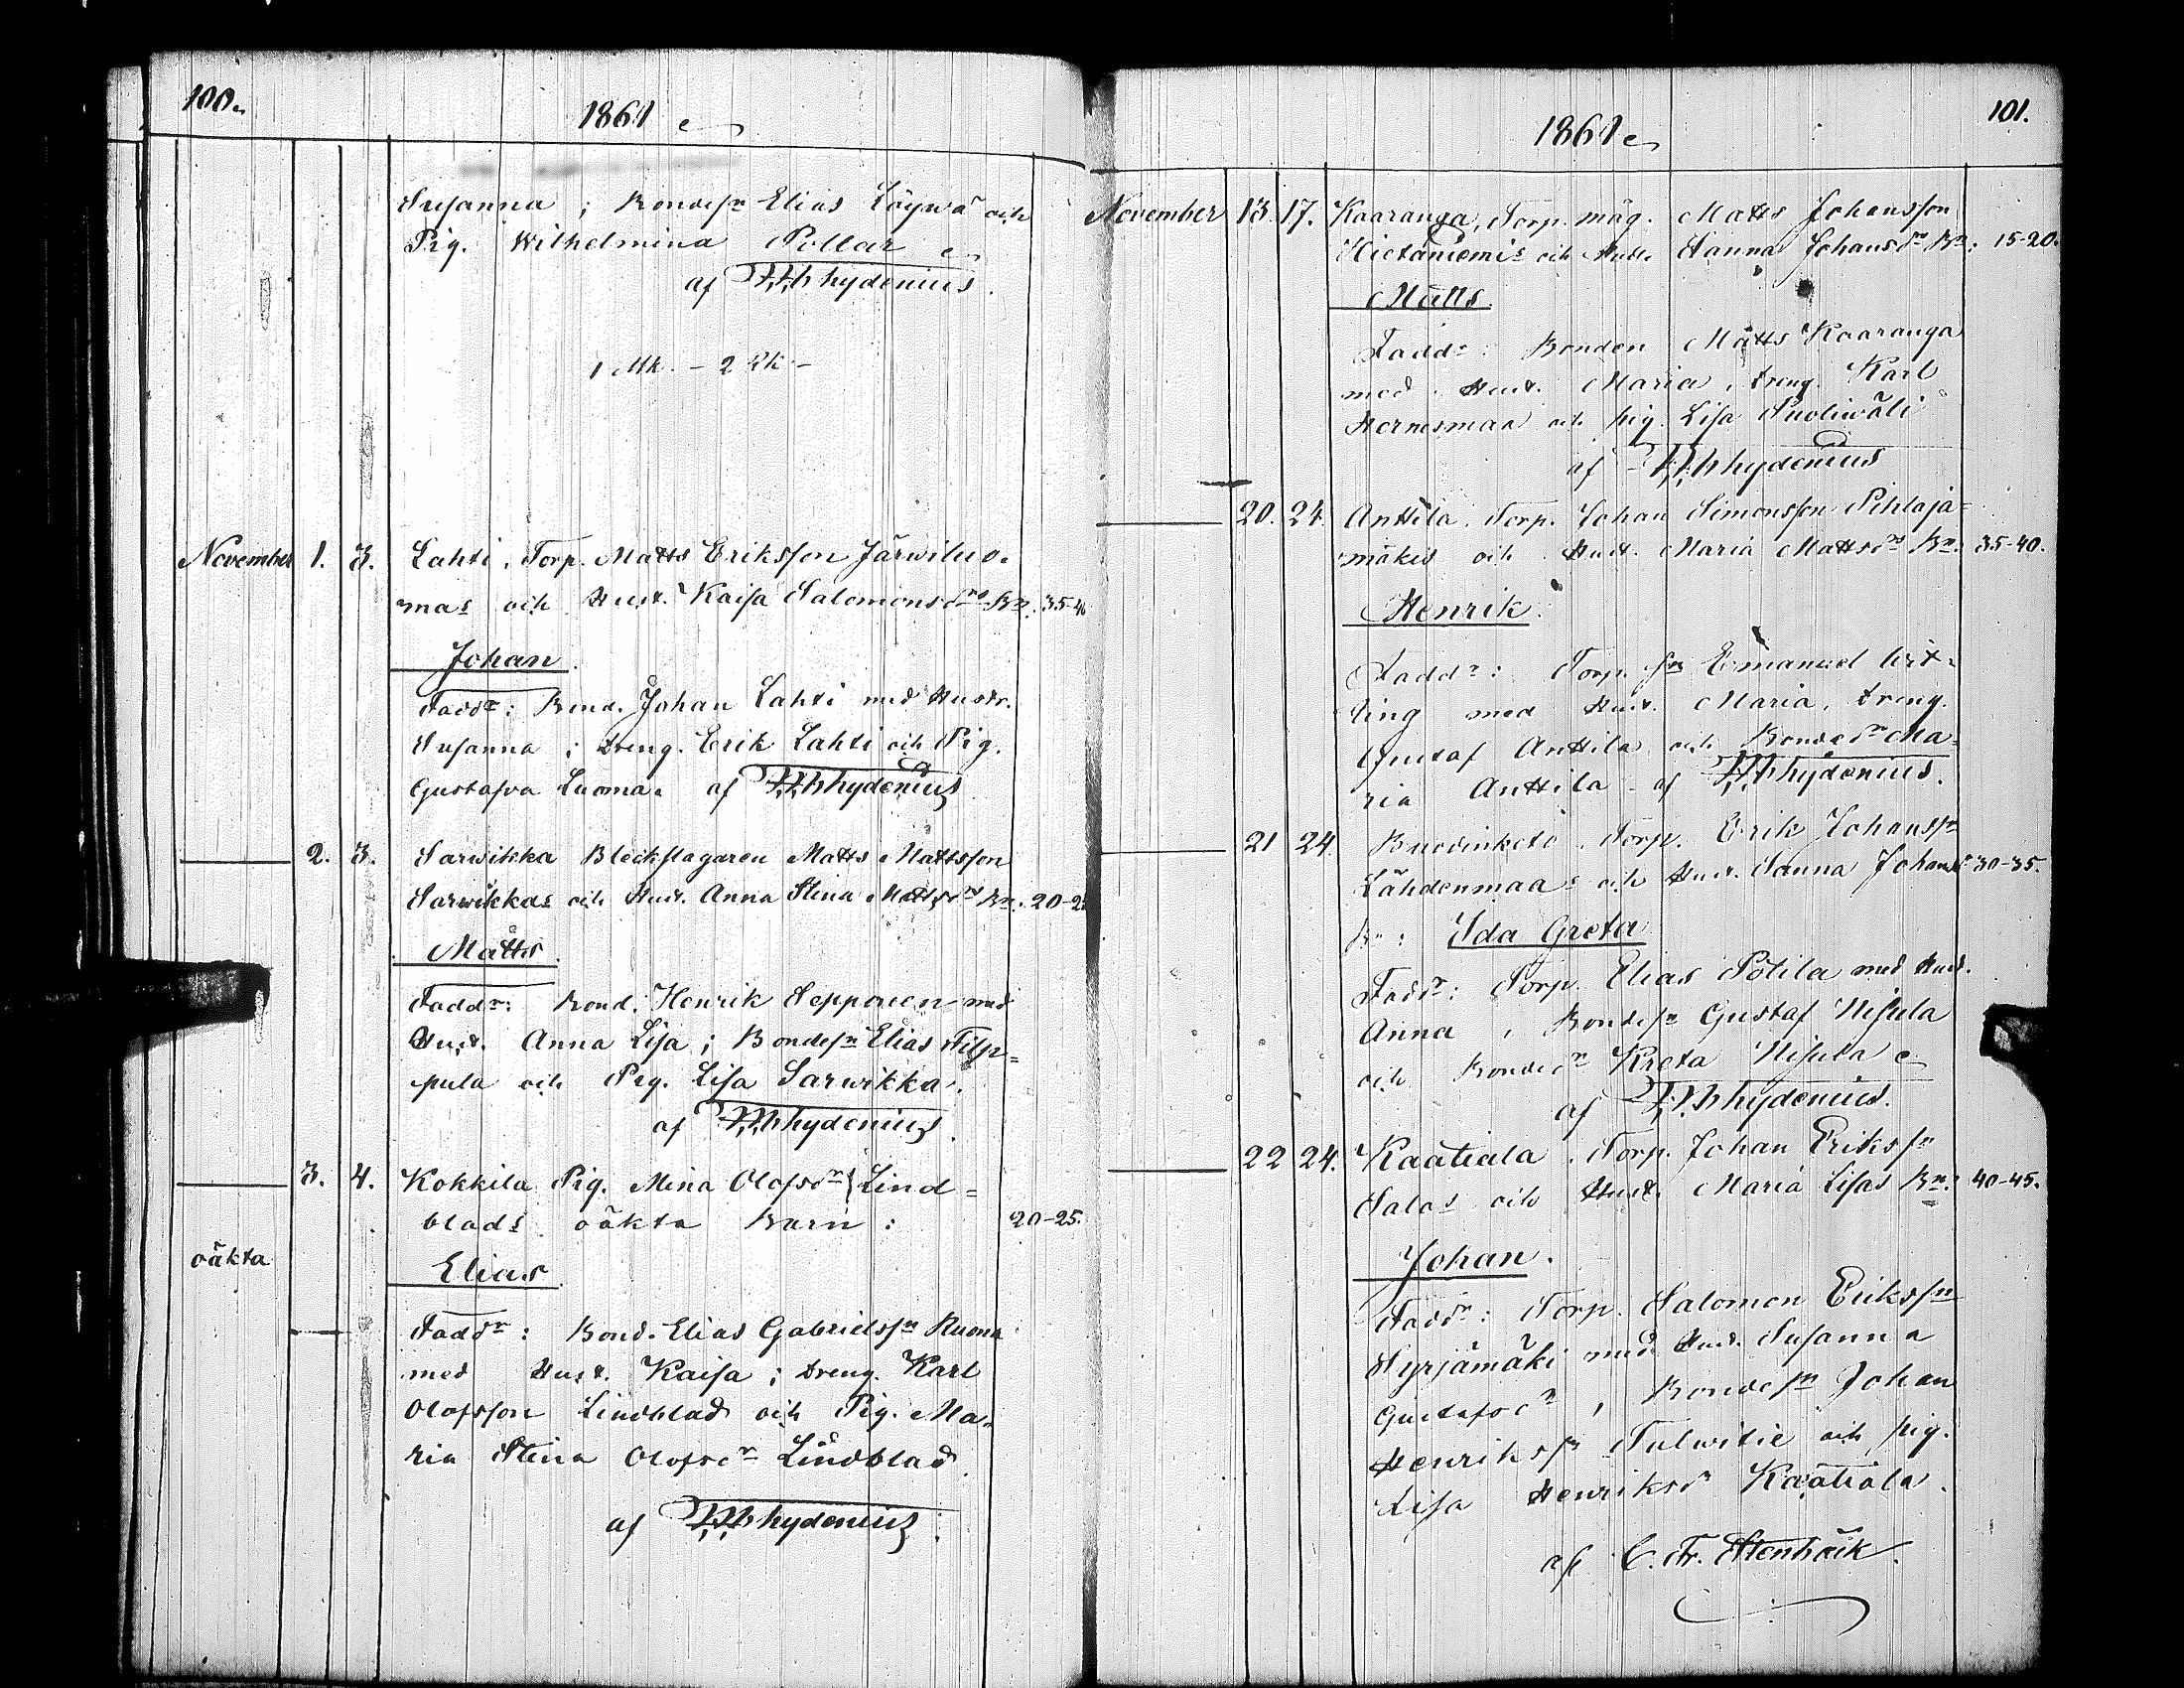 100.
1861
Susanna; Bondesn Elias Löywä och
Pig. Wilhelmina Pollar
af hydenius.
1 Mk. - 2 Qk -
November 1. 3. Lahti, Torp. Matts Eriksson Järwiluo-
mas och Hust. Kaisa Salomonsdrs Bn: 35-40
Johan.
Faddr: Bond. Johan Lahti med Hustr.
Susanna; dreng. Erik Lahti och Pig.
Gustafva Luoma. af hydenius
2. 3. Sarwikka Bleckslagaren Matts Mattsson
Sarwikkas och Hust. Anna Stina Mattsdrs Bn: 20-25
Matts.
Faddr: Bond. Henrik Sepponen med
Hust. Anna Lisa; Bondesn Elias Filp-
pula och Pig. Lisa Sarwikka.
af hydenius.
3. 4. Kokkila Pig. Mina Olofsdr Lind-
blads oäkta Barn: 20-25.
oäkta
Elias.
Faddr: Bond. Elias Gabrielssn Ruona
med Hust. Kaisa; dreng. Karl
Olofsson Lindblad och Pig. Ma-
ria Stina Olofsdr Lindblad.
af hydenius.
101.
1861
November 13. 17. Kaaranga, Torp. måg. Matts Johansson
Hietaniemis och Hust. Sanna Johansdrs Bn: 15-20.
Matts.
Faddr: Bonden Matts Kaaranga
med Hust. Maria, dreng. Karl
Hernesmaa och pig. Lisa Suoliwäli
af hydenius
20. 24. Anttila, Torp. Johan Simonsson Pihlaja-
mäkis och Hust. Maria Mattsdrs Bn: 35-40.
Henrik.
Faddr: Torp. sn Emanuel
ling med Hust. Maria, dreng.
Gustaf Anttila och Bondedr Ma-
ria Anttila af hydenius.
21 24. Torp. Erik Johanssn
Lähdenmaas och Hust. Sanna Johansdrs 30-35.
Bn: Ida Greta
Faddr: Torp. Elias Potila med Hust.
Anna, Bondesn Gustaf Nisula
och Bondedr Kreta Nisula
af hydenius.
22 24. Kaatiala, Torp. Johan Erikssn
Salos och Hust. Maria Lisas Bn: 40-45.
Johan.
Faddr: Torp. Salomon Erikssn
Syrjämäki med Hust. Susanna
Gustafsdr, Bondesn Johan
Henrikssn Tulwitie och pig.
Lisa Henriksdr Kaatiala.
af C. Fr. Stenbäck.